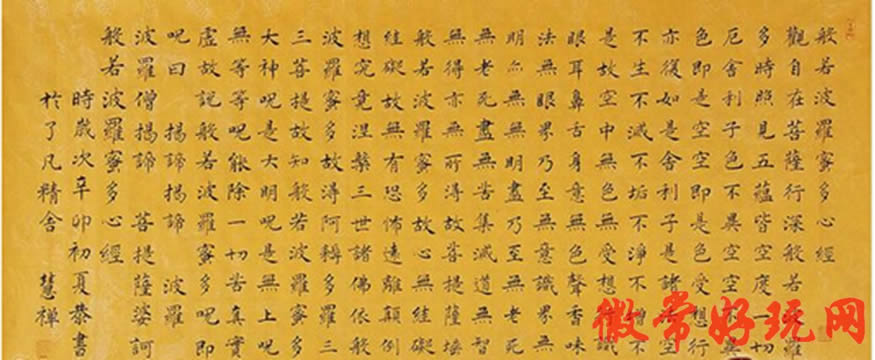 般若波羅蜜多心經
觀自在菩薩行深般若波羅
多時照見五蘊皆空度一切
厄舍利子色不異空空不異
色即是空空即是色受想行
亦復如是舍利子是諸法空
不生不滅不垢不淨不增不
是故空中無色無受想行識
眼耳鼻舌身意無色聲香味
法無眼界乃至無意識界無
明亦無無明盡乃至無老死
無老死盡無苦集滅道無智
無得亦無所得故菩提薩埵
般若波羅蜜多故心無罣礙
罣礙故無有恐怖遠離顛倒
想究竟涅槃三世諸佛依般
波羅蜜多故得阿耨多羅三
三菩提故知般若波羅蜜多
大神呪是大明呪是無上呪
無等等呪能除一切苦真實
虛故說般若波羅蜜多呪即
呪曰 揭諦揭諦 波羅
波羅僧揭諦 菩提薩婆訶
般若波羅蜜多心經
時歲次辛卯初夏恭書
於了凡精舍 慧禪
徽常好玩网